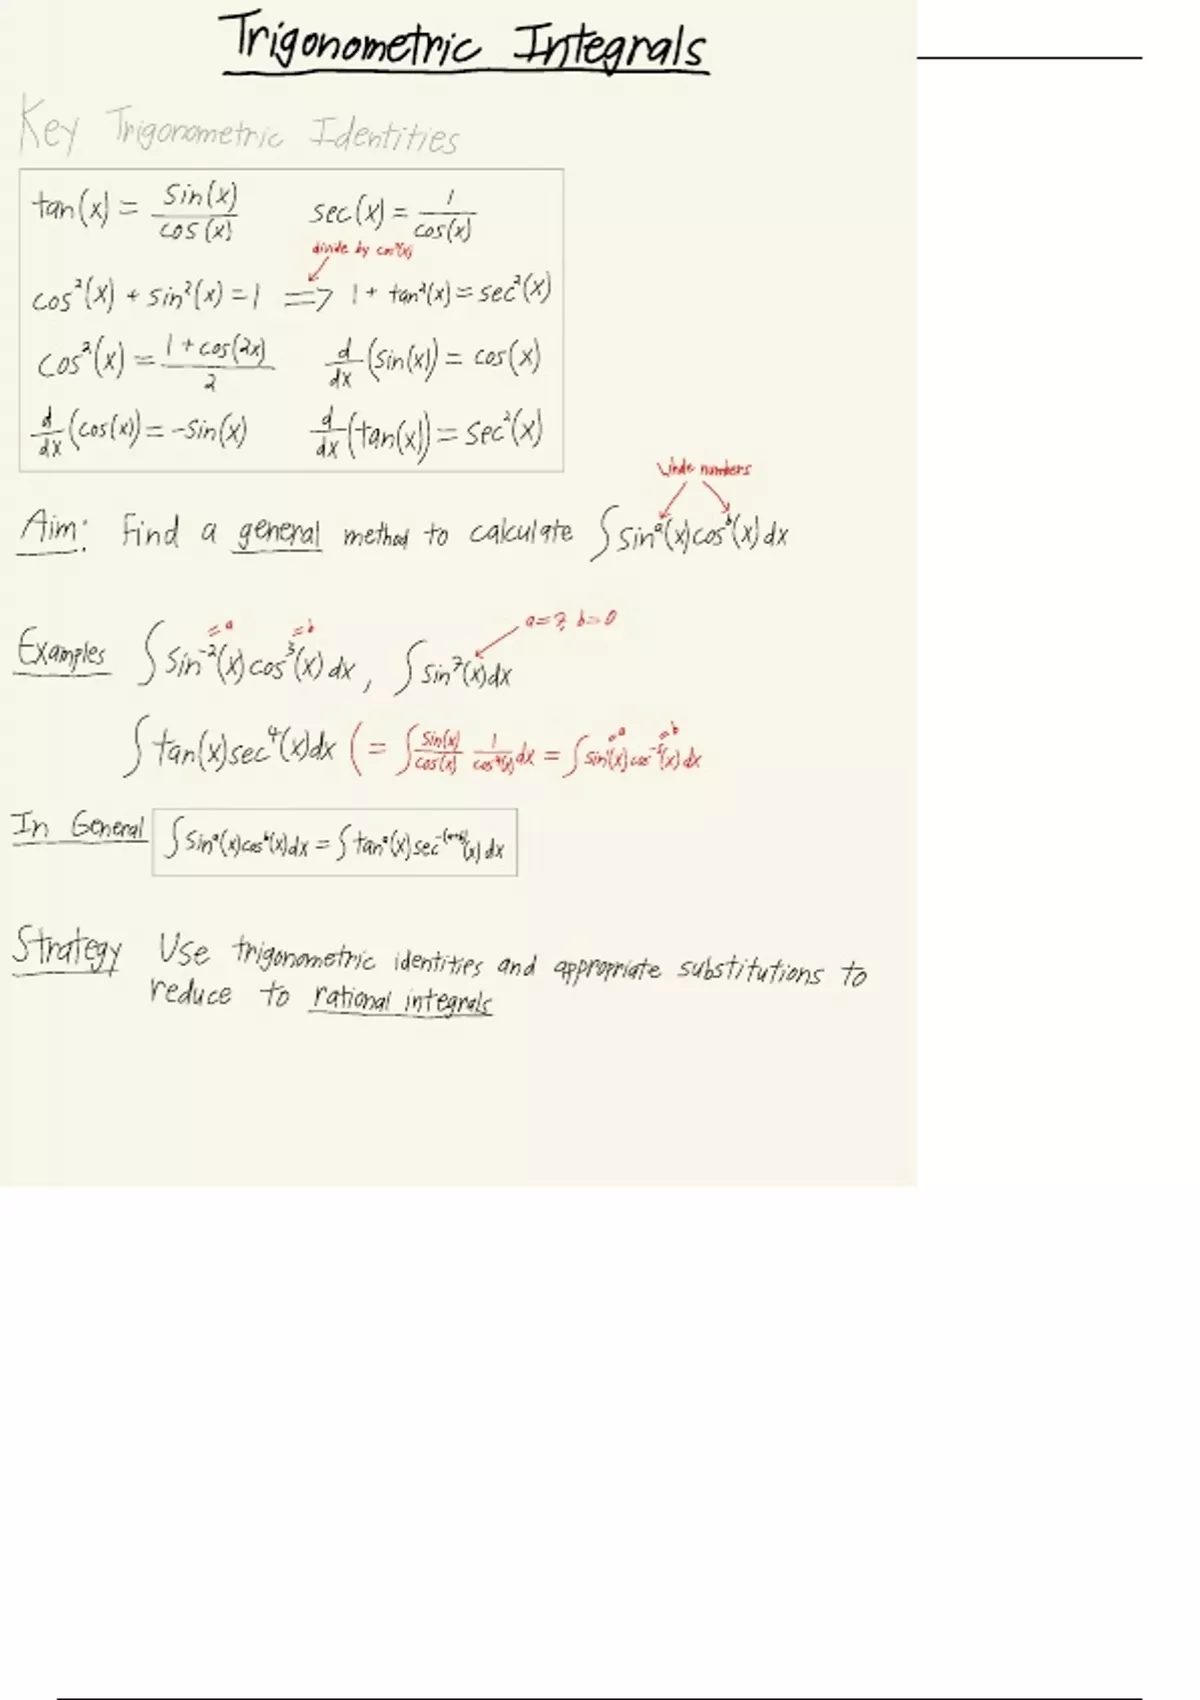 Trigonometric Integrals
Key Trigonometric Identities
tan(x) = sin(x)/cos(x)    sec(x) = 1/cos(x)
divide by cos²(x)
cos²(x) + sin²(x) = 1 ⟹ 1 + tan²(x) = sec²(x)
cos²(x) = (1 + cos(2x))/2    d/dx (sin(x)) = cos(x)
d/dx (cos(x)) = -sin(x)    d/dx (tan(x)) = sec²(x)
numbers
Aim: Find a general method to calculate ∫ sinᵃ(x) cosᵇ(x) dx
= a    = b    a = 7, b = 0
Examples ∫ sin⁻²(x) cos³(x) dx, ∫ sin⁷(x) dx
= a    = b
∫ tan(x) sec⁴(x) dx (= ∫ sin(x)/cos(x) 1/cos⁴(x) dx = ∫ sin¹(x) cos⁻⁵(x) dx
In General ∫ sinᵃ(x) cosᵇ(x) dx = ∫ tanᵃ(x) sec⁻⁽ᵃ⁺ᵇ⁾(x) dx
Strategy Use trigonometric identities and appropriate substitutions to
reduce to rational integrals